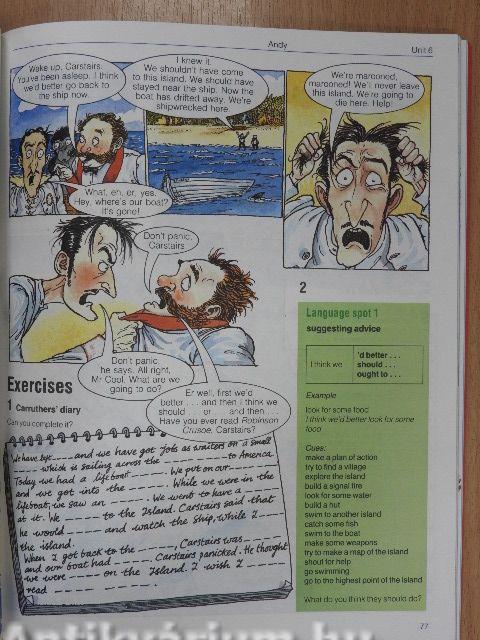 Andy
Unit 6
Wake up, Carstairs.
You've been asleep. I think
we'd better go back to
the ship now.
I knew it.
We shouldn't have come
to this island. We should have
stayed near the ship. Now the
boat has drifted away. We're
shipwrecked here.
We're marooned,
marooned! We'll never leave
this island. We're going to
die here. Help!
What, eh, er, yes.
Hey, where's our boat?
It's gone!
Don't panic,
Carstairs.
Don't panic,
he says. All right,
Mr Cool. What are we
going to do?
Er well, first we'd
better . . . and then I think we
should . . . or . . . and then . . .
Have you ever read Robinson
Crusoe, Carstairs?
Exercises
1 Carruthers' diary
Can you complete it?
We have and we have got jobs as waiters on a small
which is sailing across the to America.
Today we had a lifeboat . We put on our
and we got into the . While we were in the
lifeboat, we saw an . We went to have a
at it. We to the Island. Carstairs said that
he would and watch the ship, while I
the island.
When I got back to the , Carstairs was
and our boat had . Carstairs panicked. He thought
we were on the Island. I wish I
read
2
Language spot 1
suggesting advice
I think we
'd better . . .
should . . .
ought to . . .
Example
look for some food
I think we'd better look for some
food
Cues:
make a plan of action
try to find a village
explore the island
build a signal fire
look for some water
build a hut
swim to another island
catch some fish
swim to the boat
make some weapons
try to make a map of the island
shout for help
go swimming
go to the highest point of the island
What do you think they should do?
77